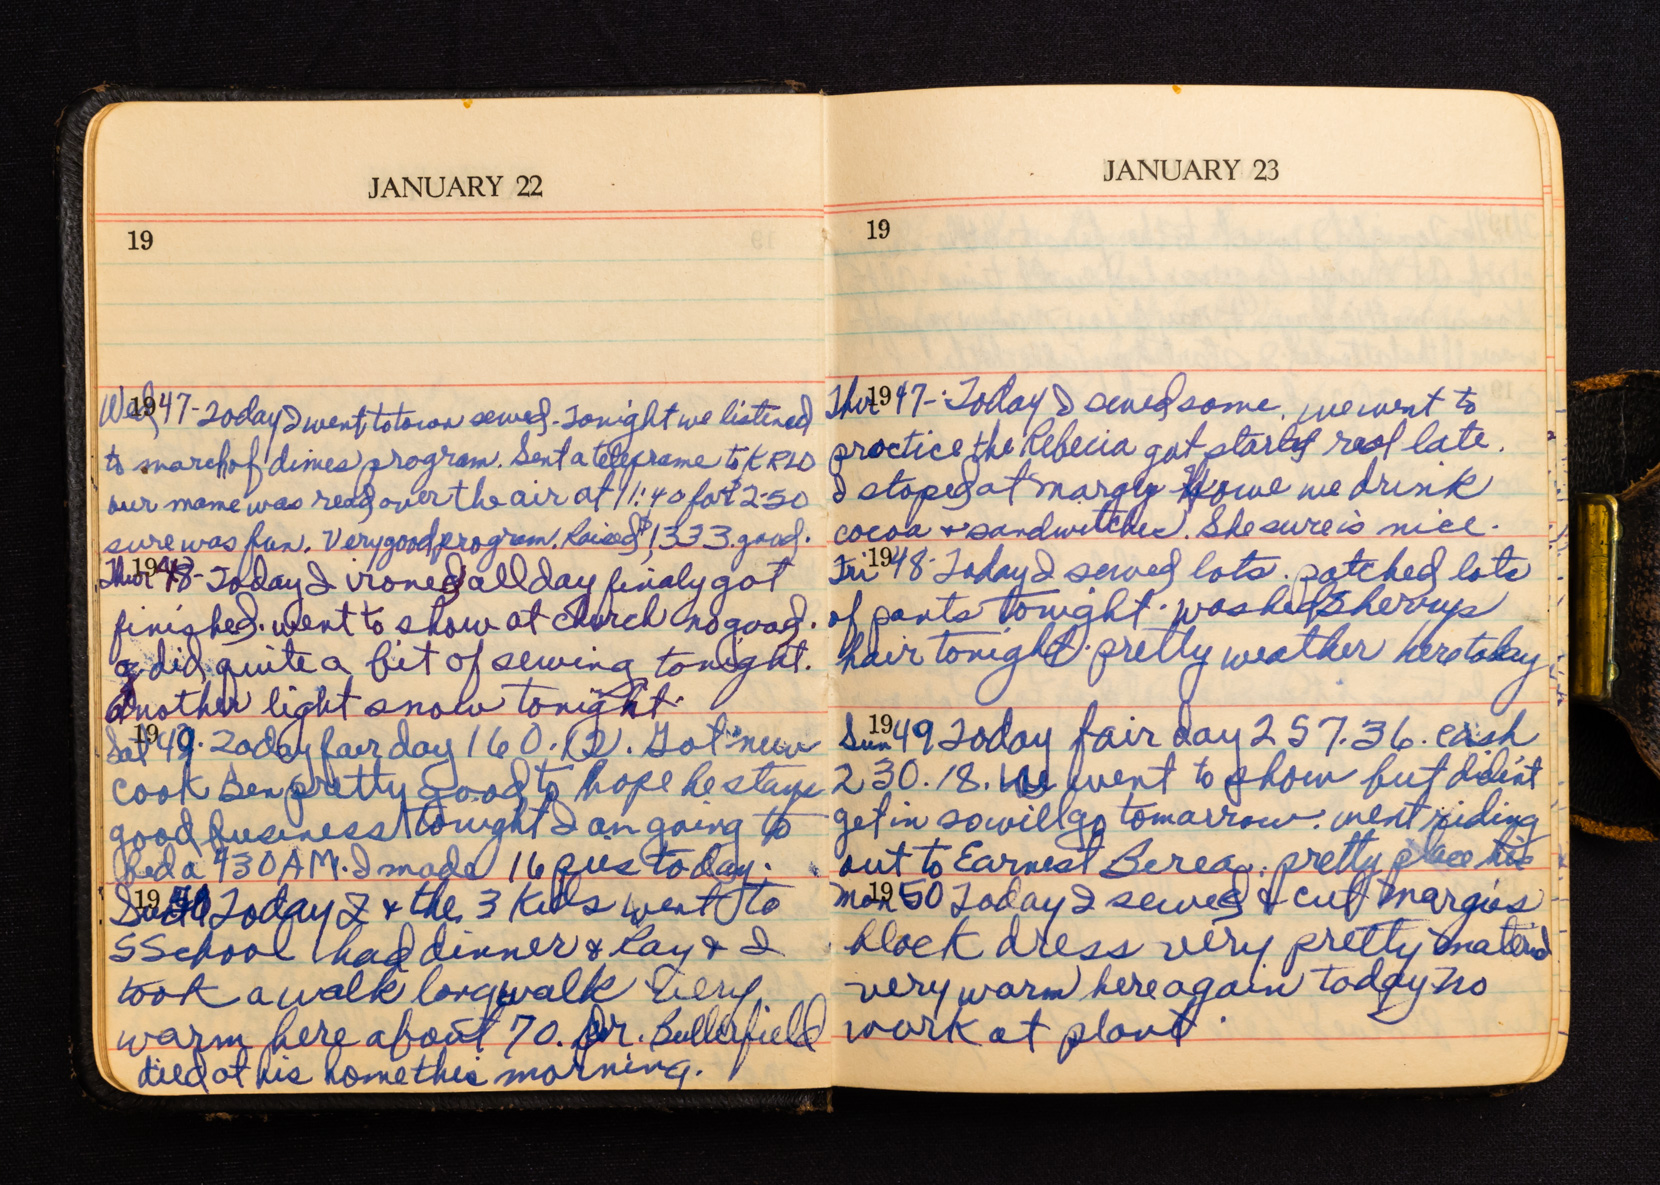 JANUARY 22
19
Wed 1947- Today I went to town sewed. Tonight we listened
to march of dimes program. Sent a telegrame to KRLD
our name was read over the air at 11:40 for $2.50
sure was fun. Very good program. Raised $1,333. good.
Thur 1948- Today I ironed all day finaly got
finished. went to show at church no good.
I did quite a bit of sewing tonight.
Another light snow tonight.
Sat 1949. Today fair day 160.12. Got new
cook Ben pretty good to hope he stays
good business tonight I am going to
bed a 430 AM. I made 16 pies today.
Sun 1950 Today I & the 3 Kids went to
S School had dinner & Ray & I
took a walk long walk Very
warm here about 70. Dr. Butterfield
died at his home this morning.
JANUARY 23
19
Thur 1947- Today I sewed some. we went to
practice the Rebecia got started real late.
I stoped at Margy Howe we drink
cocoa & sandwitches. She sure is nice.
Fri 1948- Today I sewed lots. patched lots
of pants tonight. washed Sherrys
hair tonight. pretty weather here today
Sun 1949 Today fair day 257.36. cash
230.18. We went to show but didint
get in so will go tomarrow. went riding
out to Earnest Berea. pretty place his
Mon 1950 Today I sewed & cut Margies
black dress very pretty material
very warm here again today no
work at plant.